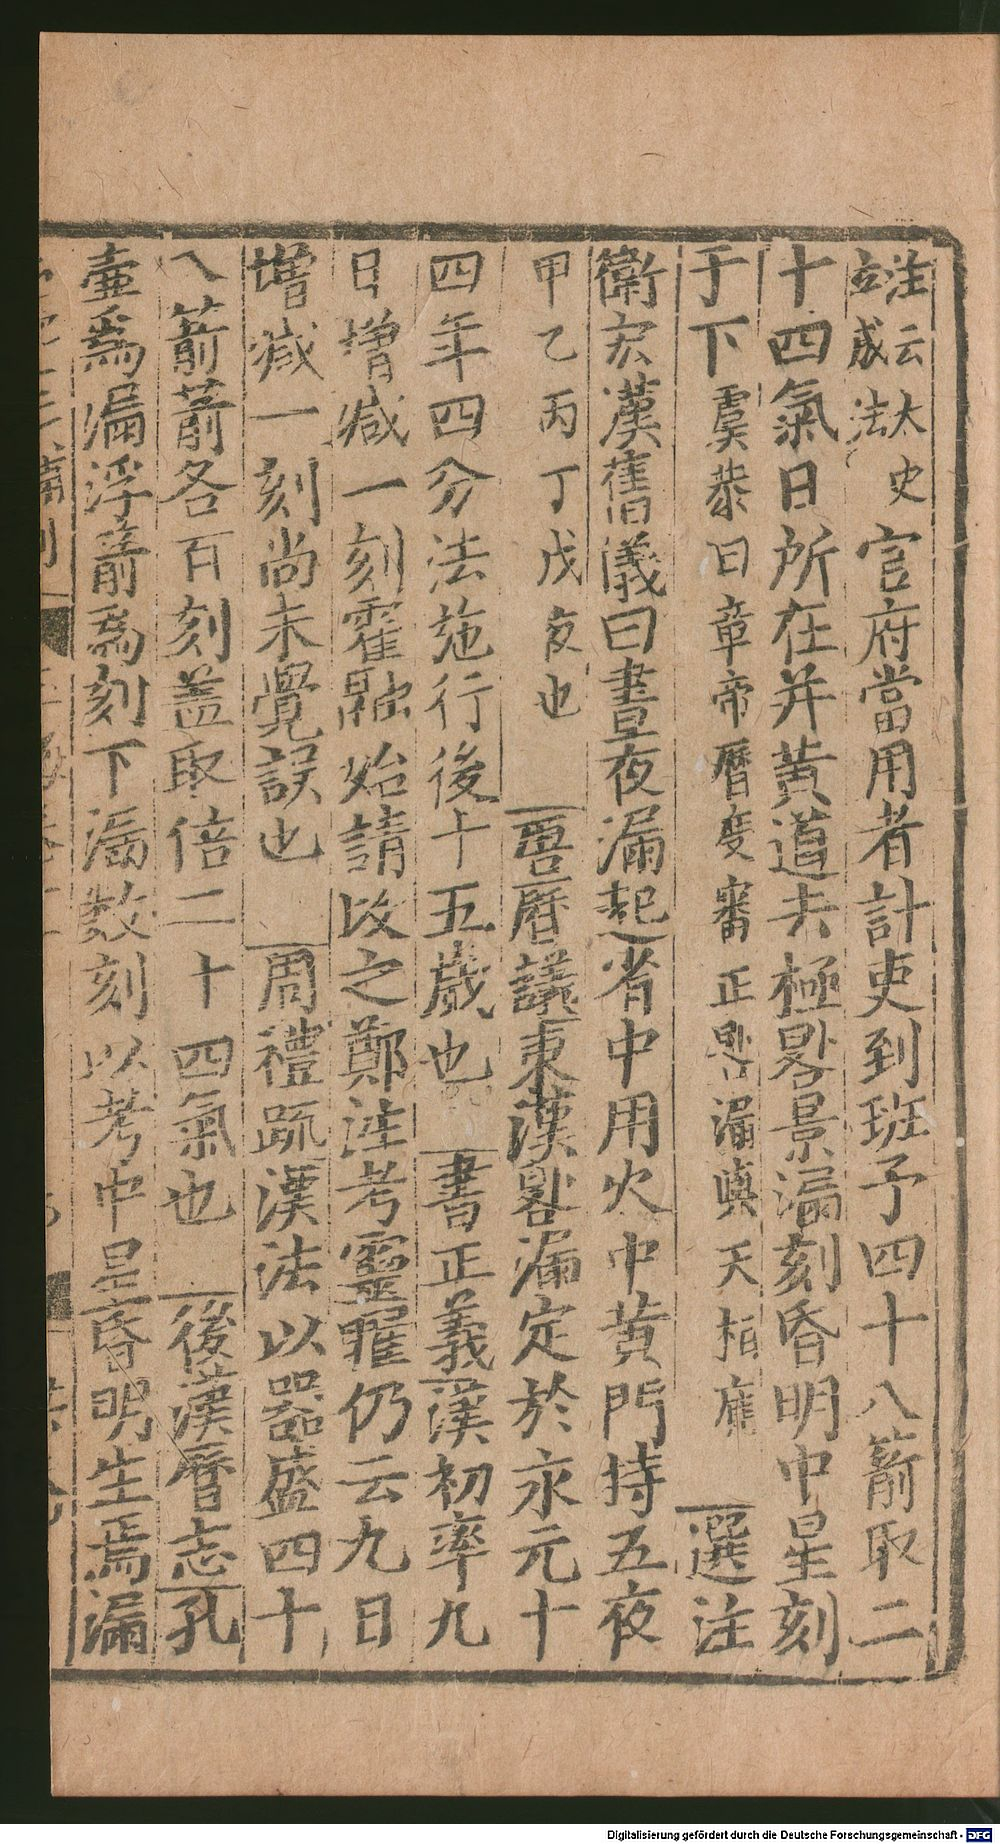 注云太史立成法官府當用者計吏到班予四十八箭取二
十四氣日所在并黃道去極晷景漏刻昏明中星刻
于下虞恭曰章帝曆度審正晷漏與天相應選注
衛宏漢舊儀曰晝夜漏起省中用火中黃門持五夜
甲乙丙丁戊夜也唐曆議東漢晷漏定於永元十
四年四分法施行後十五歲也書正義漢初率九
日增减一刻霍融始請改之鄭注考靈曜仍云九日
增减一刻尚未覺誤也周禮疏漢法以器盛四十
八箭箭各百刻盖取倍二十四氣也後漢曆志孔
壷爲漏浮箭爲刻下漏数刻以考中星昏明生焉漏
Digitalisierung gefördert durch die Deutsche Forschungsgemeinschaft - DFG